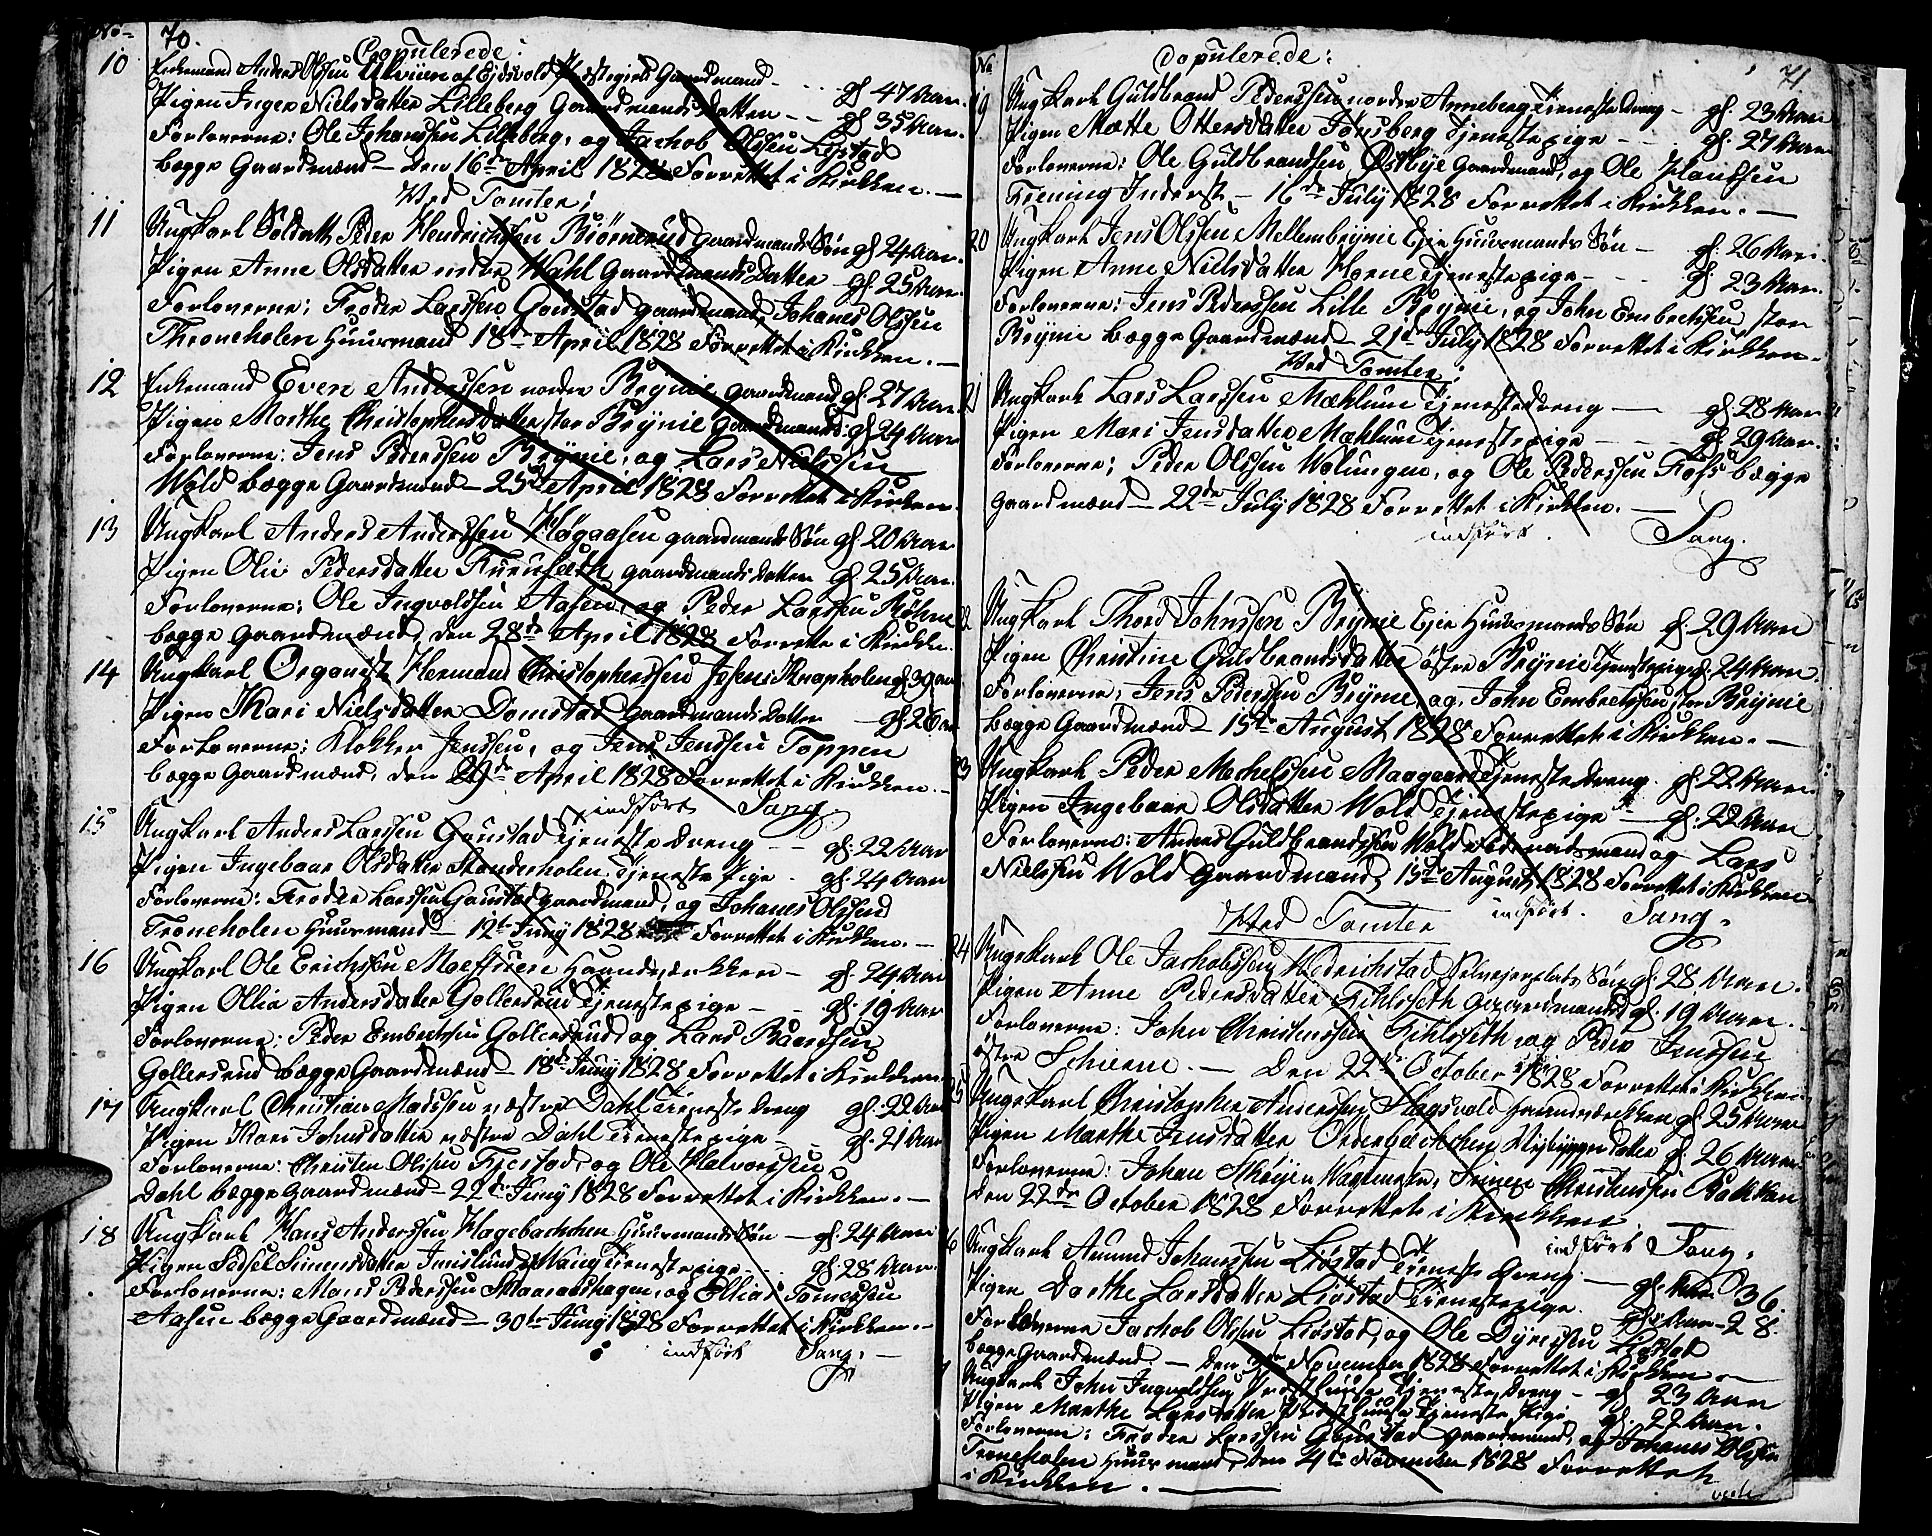 No 70.
Copulerede:
10 Enkemand Anders Olssen af Eidsvold Præstegield Gaardmand - gl 47 Aar.
Pigen Inger Nielsdatter Lilleberg Gaardmands Datter - - gl 35 Aar.
Forloverne: Ole Johanssen Lilleberg, og Jachob Olssen Liøstad
begge Gaardmænd - Den 16de April 1828 Forrettet i Kirkken. -
Ved Tomter:
11 Ungkarl Soldatt Peder Hendrichssen Biørnerud gaardmands Søn gl 24 Aar.
Pigen Anne Olsdatter nedre Wahl Gaardmands Datter - gl 25 Aar.
Forloverne: Froder Larssen Goustad gaardmand, Johanes Olssen
Throneholen Huusmand 18de April 1828 Forrettet i Kirkken. -
12 Enkemand Even Anderssen nordre Brynie gaardmand gl: 27 Aar
Pigen Marthe Christophersdatter stor Brynie gaardmands: gl 24 Aar
Forloverne: Jens Pederssen Brynie, og Lars Nielssen
Wold begge Gaardmænd - 25de April 1828 Forrettet i Kirkken.
13 Ungkarl Anders Anderssen Høgaasen gaardmands Søn gl. 20 Aar
Pigen Olie Pedersdatter Furusæth gaardmands Datter gl. 25 Aar.
Forloverne: Ole Ingvoldssen Aasen, og Peder Larssen Bøhne
begge Gaardmænd, den 28de April 1828 Forrette i Kirkken.
14 Ungkarl Organist Hermand Christopherssen Knapholen gl 39 Aar
Pigen Kari Nielsdatter Domstad gaardmands Datter - gl 26 Aar
Forloverne: Klokker Jenssen, og Jens Jenssen Toppen
begge Gaardmænd, den 29de April 1828 Forrettet i Kirkken. -
indført Sang.
15 Ungkarl Anders Larssen Goustad Tjeneste Dreng - - gl: 22 Aar
Pigen Ingebaar Olsdatter Tjeneste Pige - gl. 24 Aar
Forloverne: Froder Larssen Goustad gaardmand, og Johanes Olssen
Troneholen Huusmand - 12te Juny 1828 Forrettet i Kirkken. -
16 Ungkarl Ole Erichssen Haandværkker - gl. 24 Aar
Pigen Ollia Andersdatter Gollersrud Tjenestepige - - gl. 19 Aar
Forloverne: Peder Embretssen Gollersrud, og Lars Baardssen
Gollersrud begge Gaardmænd - 18de Juny 1828 Forrettet i Kirkken.
17 Ungkarl Christian Madssen væstre Dahl Tjeneste Dreng gl. 22 Aar
Pigen Kari Johnsdatter væstre Dahl Tjenestepige - - gl. 21 Aar
Forloverne: Christen Olssen Fjestad, og Ole Halvorssen
Dahl begge Gaardmænd - 22de Juny 1828 Forrettet i Kirkken. -
18 Ungkarl Hans Anderssen Hagebachken Huusmands Søn - gl. 24 Aar
Pigen Sidsel Simensdatter Tjenestepige - gl. 28 Aar.
Forloverne: Mons Pederssen og Ellias
Aasen begge Gaardmænd - 30te Juny 1828 Forrettet i Kirkken. -
indført Sang. -
No Copulerede: 71
19 Ungkarl Guldbrand Pederssen nordre Anneberg Tjeneste Dreng - gl. 23 Aar
Pigen Mætte Ottersdatter Tønsberg Tjenestepige - - gl. 27 Aar
Forloverne: Ole Guldbrandssen Østbye Gaardmand, og Ole Hanssen
Inderst - 16de July 1828 Forrettet i Kirkken. -
20 Ungkarl Jens Olssen Mellembrynie Eje Huusmands Søn - gl. 26 Aar.
Pigen Anne Nielsdatter Horne Tjenestepige - gl. 23 Aar.
Forloverne: Jens Pederssen Lille Brynie, og John Embretssen stor
Brynie begge Gaardmænd - 21de July 1828 Forrettet i Kirkken.
Ved Tomter:
21 Ungkarl Lars Larssen Mæhlum Tjeneste Dreng - gl. 28 Aar
Pigen Mari Jensdatter Mæhlum Tjenestepige - - - gl 29 Aar.
Forloverne: Peder Olssen og Ole Pederssen Foss begge
gaardmænd - 22de July 1828 Forrettet i Kirkken. -
indført. Sang.
22 Ungkarl Thord Johnssen Brynie Eje Huusmands Søn gl. 29 Aar
Pigen Christine Guldbrandsdatter østre Brynie Tjenestepige gl. 24 Aar
Forloverne: Jens Pederssen Brynie, og John Embretssen stor Brynie
begge Gaardmænd - 15de August 1828 Forrettet i Kirkken. -
23 Ungkarl Peder Michelssen Tjeneste Dreng. gl. 22 Aar
Pigen Ingebaar Olsdatter Wold Tjenestepige - gl. 22 Aar
Forloverne: Anders Guldbrandssen Wold Føderaadsmand og Lars
Nielssen Wold gaardmand, 15de August 1828 Forrettet i Kirkken
Ved Tomter indført. Sang.
24 Ungekarl Ole Jachobssen Hedrichstad Søn gl. 28 Aar.
Pigen Anne Pedersdatter gaardmands gl. 19 Aar.
Forloverne: John Christenssen og Peder Jenssen
østre - Den 22de October 1828 Forrettet i Kirkken
25 Ungekarl Christopher Anderssen Slagsvold Haandværkker gl. 25 Aar
Pigen Marthe Jensdatter Datter gl. 26 Aar
Forloverne: Johan Christenssen Bakken
den 22de October 1828 Forrettet i Kirkken
indført Sang.
26 Ungkarl Amund Johanssen Liøstad Tjeneste Dreng - gl. Aar 36.
Pigen Dorthe Larsdatter Liøstad Tjenestepige. gl. Aar - 28.
Forloverne Jachob Olssen Liøstad, og Ole Liøstad
begge Gaardmænd. - Den November 1828 Forrettet i Kirkken -
Ungkarl John Ingvoldssen Tjeneste Dreng - gl 23 Aar
Pigen Marthe Larsdatter Tjeneste Pige gl. 22 Aar.
Forloverne: Froder Larssen Goustad gaardmand, og Johanes Olssen
Troneholen Huusmand, den 4de November 1828 Forrettet
i Kirkken. -